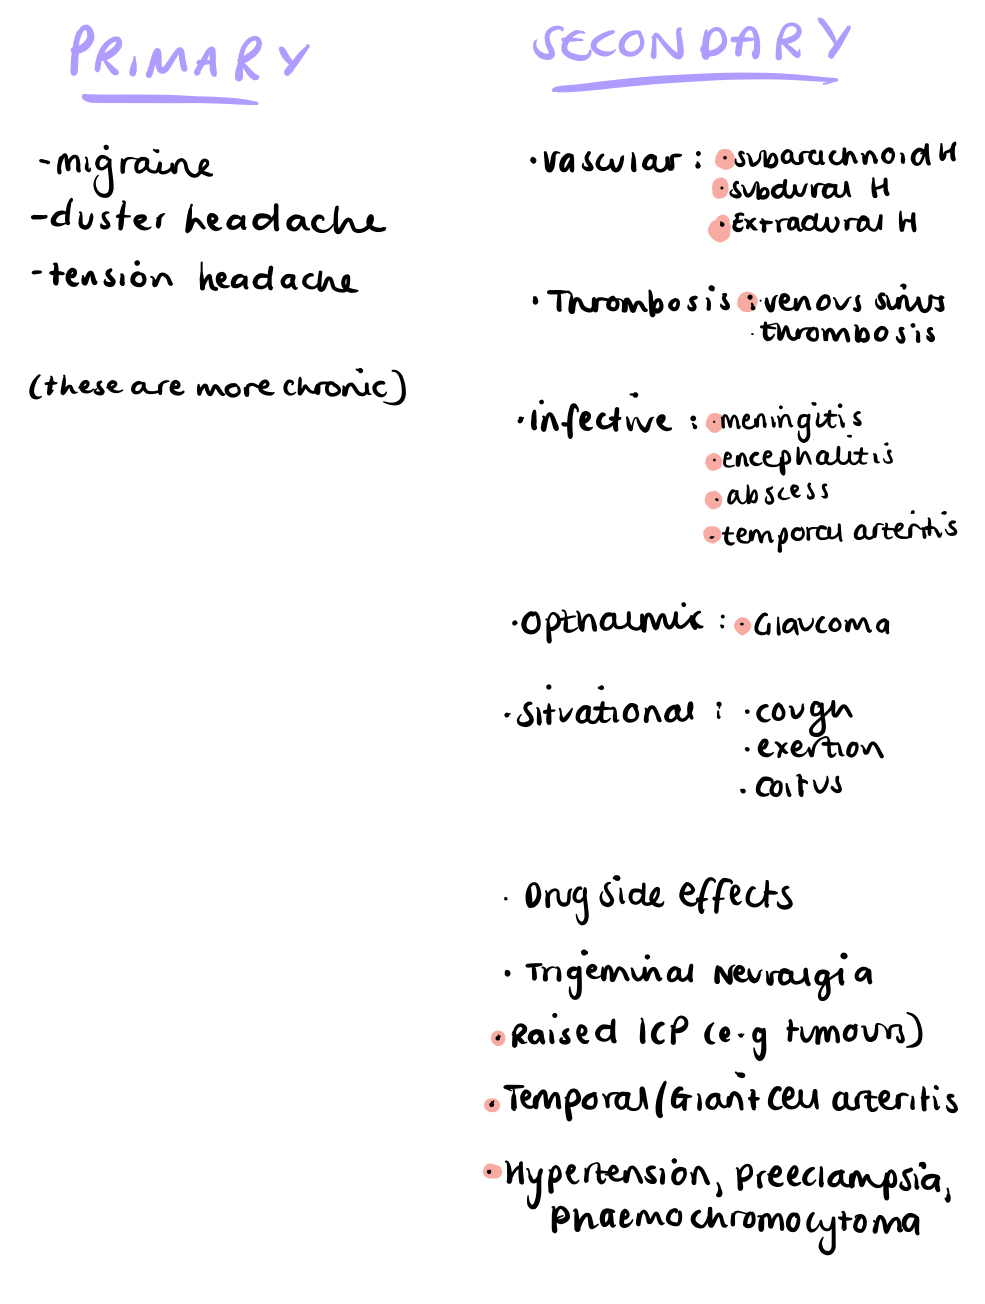 PRIMARY
-migraine
-cluster headache
-tension headache
(these are more chronic)
SECONDARY
·Vascular : ·subarachnoid H
·subdural H
·Extradural H
·Thrombosis : ·venous sinus
·thrombosis
·Infective : ·meningitis
·encephalitis
·abscess
·temporal arteritis
·Opthalmic : ·Glaucoma
·Situational : ·cough
·exertion
·coitus
·Drug side effects
·Trigeminal Neuralgia
·Raised ICP (e.g tumours)
·Temporal/Giant cell arteritis
·Hypertension, Preeclampsia,
Phaemochromocytoma